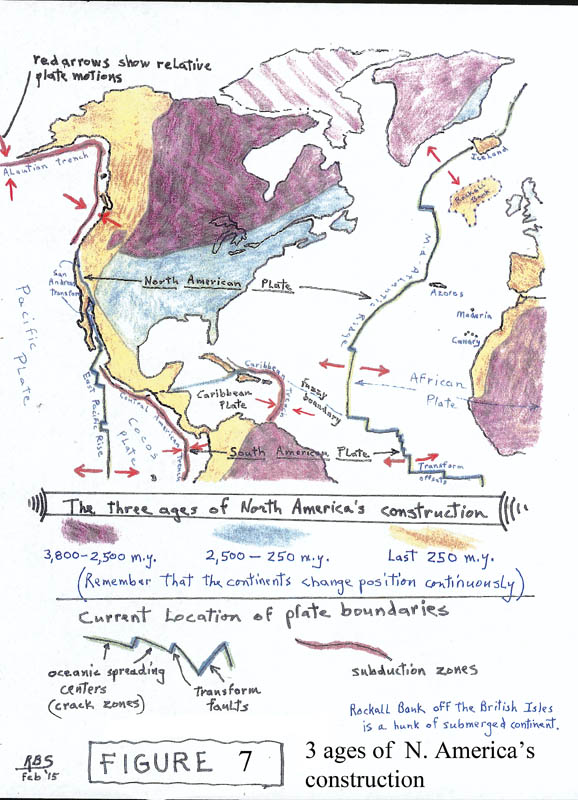 red arrows show relative
plate motions
Alautian trench
Iceland
Rockall
Bank
Mid Atlantic Ridge
San
Andreas
Transform
North American Plate
Azores
Maderia
Canary
Pacific Plate
East Pacific Rise
Central American Trench
Cocos
Plate
Caribbean
Plate
Caribbean Trench
fuzzy
boundary
African
Plate
South American Plate
Transform
offsets
The three ages of North America's construction
3,800-2,500 m.y. 2,500 - 250 m.y. Last 250 m.y.
(Remember that the continents change position continuously)
Current Location of plate boundaries
oceanic spreading
centers
(crack zones)
transform
faults
subduction zones
Rockall Bank off the British Isles
is a hunk of submerged continent.
RBS
Feb '15
FIGURE 7
3 ages of N. America's
construction